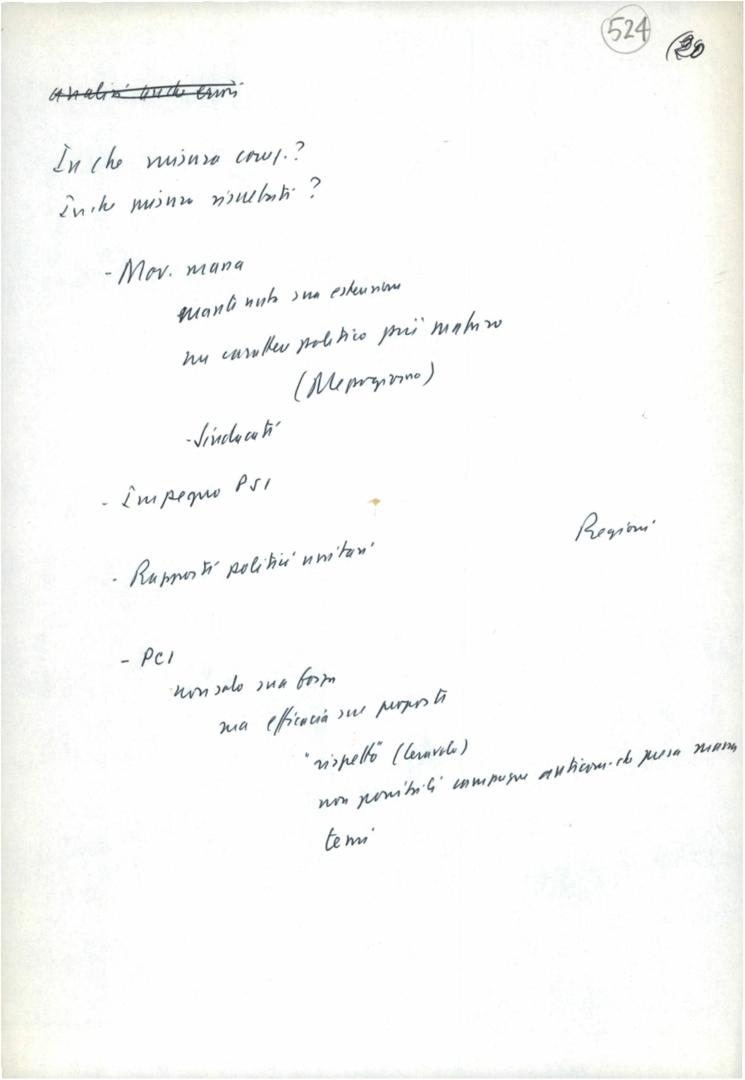 524
20
analisi anche errori
In che misura cons.?
In che misura risultati?
- Mov. massa
mantenuto sua estensione
un carattere politico più maturo
(Mezzogiorno)
- Sindacati
- Impegno PSI
Regioni
- Rapporti politici unitari
- PCI
non solo sua forza
ma efficacia sue proposte
"rispetto" (Cervolo)
non possibili campagne anticom. di presa massa
temi